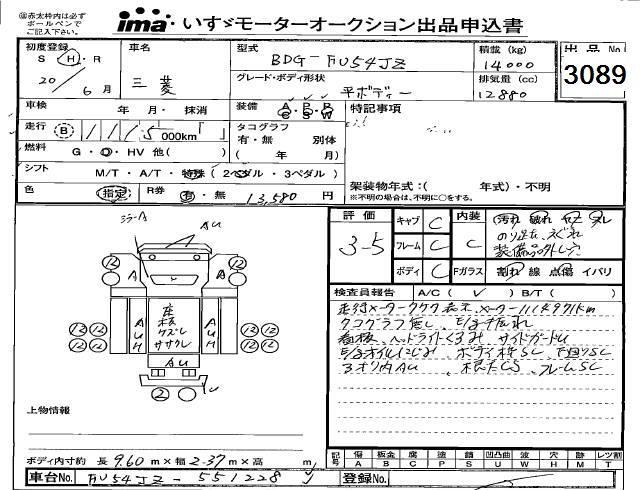 ㊟赤太枠内は必ず
ボールペンで
ご記入下さい。
ima いすゞモーターオークション出品申込書
初度登録 S H R
20年 6月
車名
三菱
型式
BDG-FU54JZ
グレード・ボディ形状
平ボディー
積載 (kg)
14000
排気量 (cc)
12880
出品No
3089
車検 年 月・抹消
走行 B 1115 000km
燃料 G・O・HV 他( )
シフト M/T・A/T・特殊 (2ペダル・3ペダル)
色 指定 R券 有・無 13,580円
装備 A C P S R W
タコグラフ
有・無 別体
( 年 月)
特記事項
架装物年式:( 年式)・不明
※不明の場合は、不明に○をする。
評価
3-5
キャブ C
フレーム C
ボディ C
内装 C
汚れ 破れ ヤケ スレ
のり逆左、えぐれ
装備品外し穴
Fガラス 割れ 線 点傷 イバリ
検査員報告 A/C( ✓ ) B/T( )
タコグラフ無し
看板、ヘッドライトくもみ サイドガードU
E/gオイルにじみ ボディ枠SC 下廻りSC
3オリ内AU 根太CS フレームSC
ミラーA
AU
12 12
12 12
AUH
床板
ケズレ
ササクレ
AUH
12 12 12 12
12 12 12 12
AU
2
上物情報
ボディ内寸約 長 9.60 m×幅 2.37 m×高 m
記号 傷A 板金B 腐C 塗P 錆S 凹凸曲U 波W 穴H 跡M レツ割T
車台No. FU54JZ-551228
登録No.